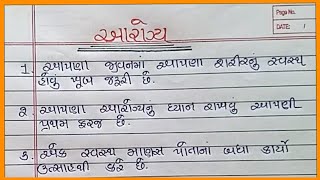 Page No.
DATE: /
આરોગ્ય
1. આપણા જીવનમાં આપણા શરીરનું સ્વસ્થ
હોવું ખૂબ જરૂરી છે.
૨. આપણા આરોગ્યનું ધ્યાન રાખવું આપણી
પ્રથમ ફરજ છે.
૩. એક સ્વસ્થ માણસ પોતાનાં બધા કાર્યો
ઉત્સાહથી કરે છે.